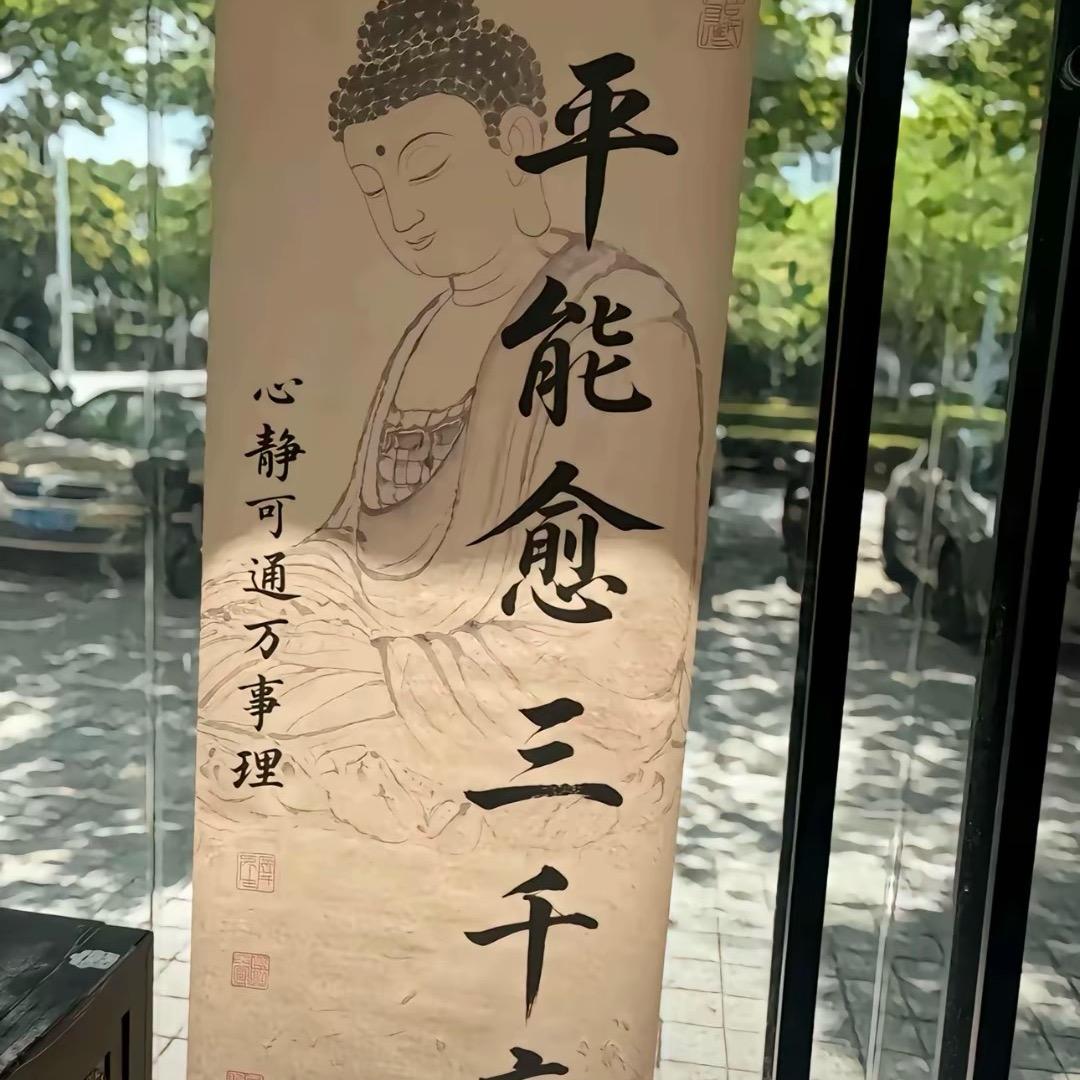 平能愈三千
心静可通万事理